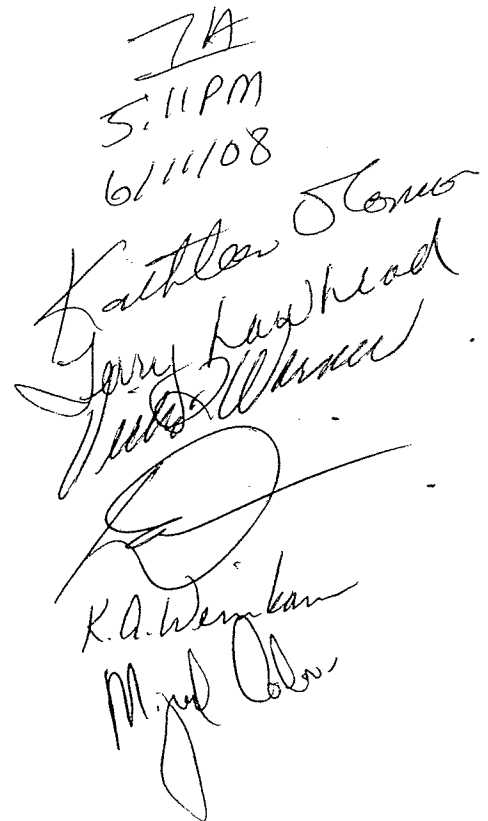 7A
5:11PM
6/11/08
Kathleen O'Connor
Terry Lawhead
Warner
K.A. Weinkam
Miguel Colon